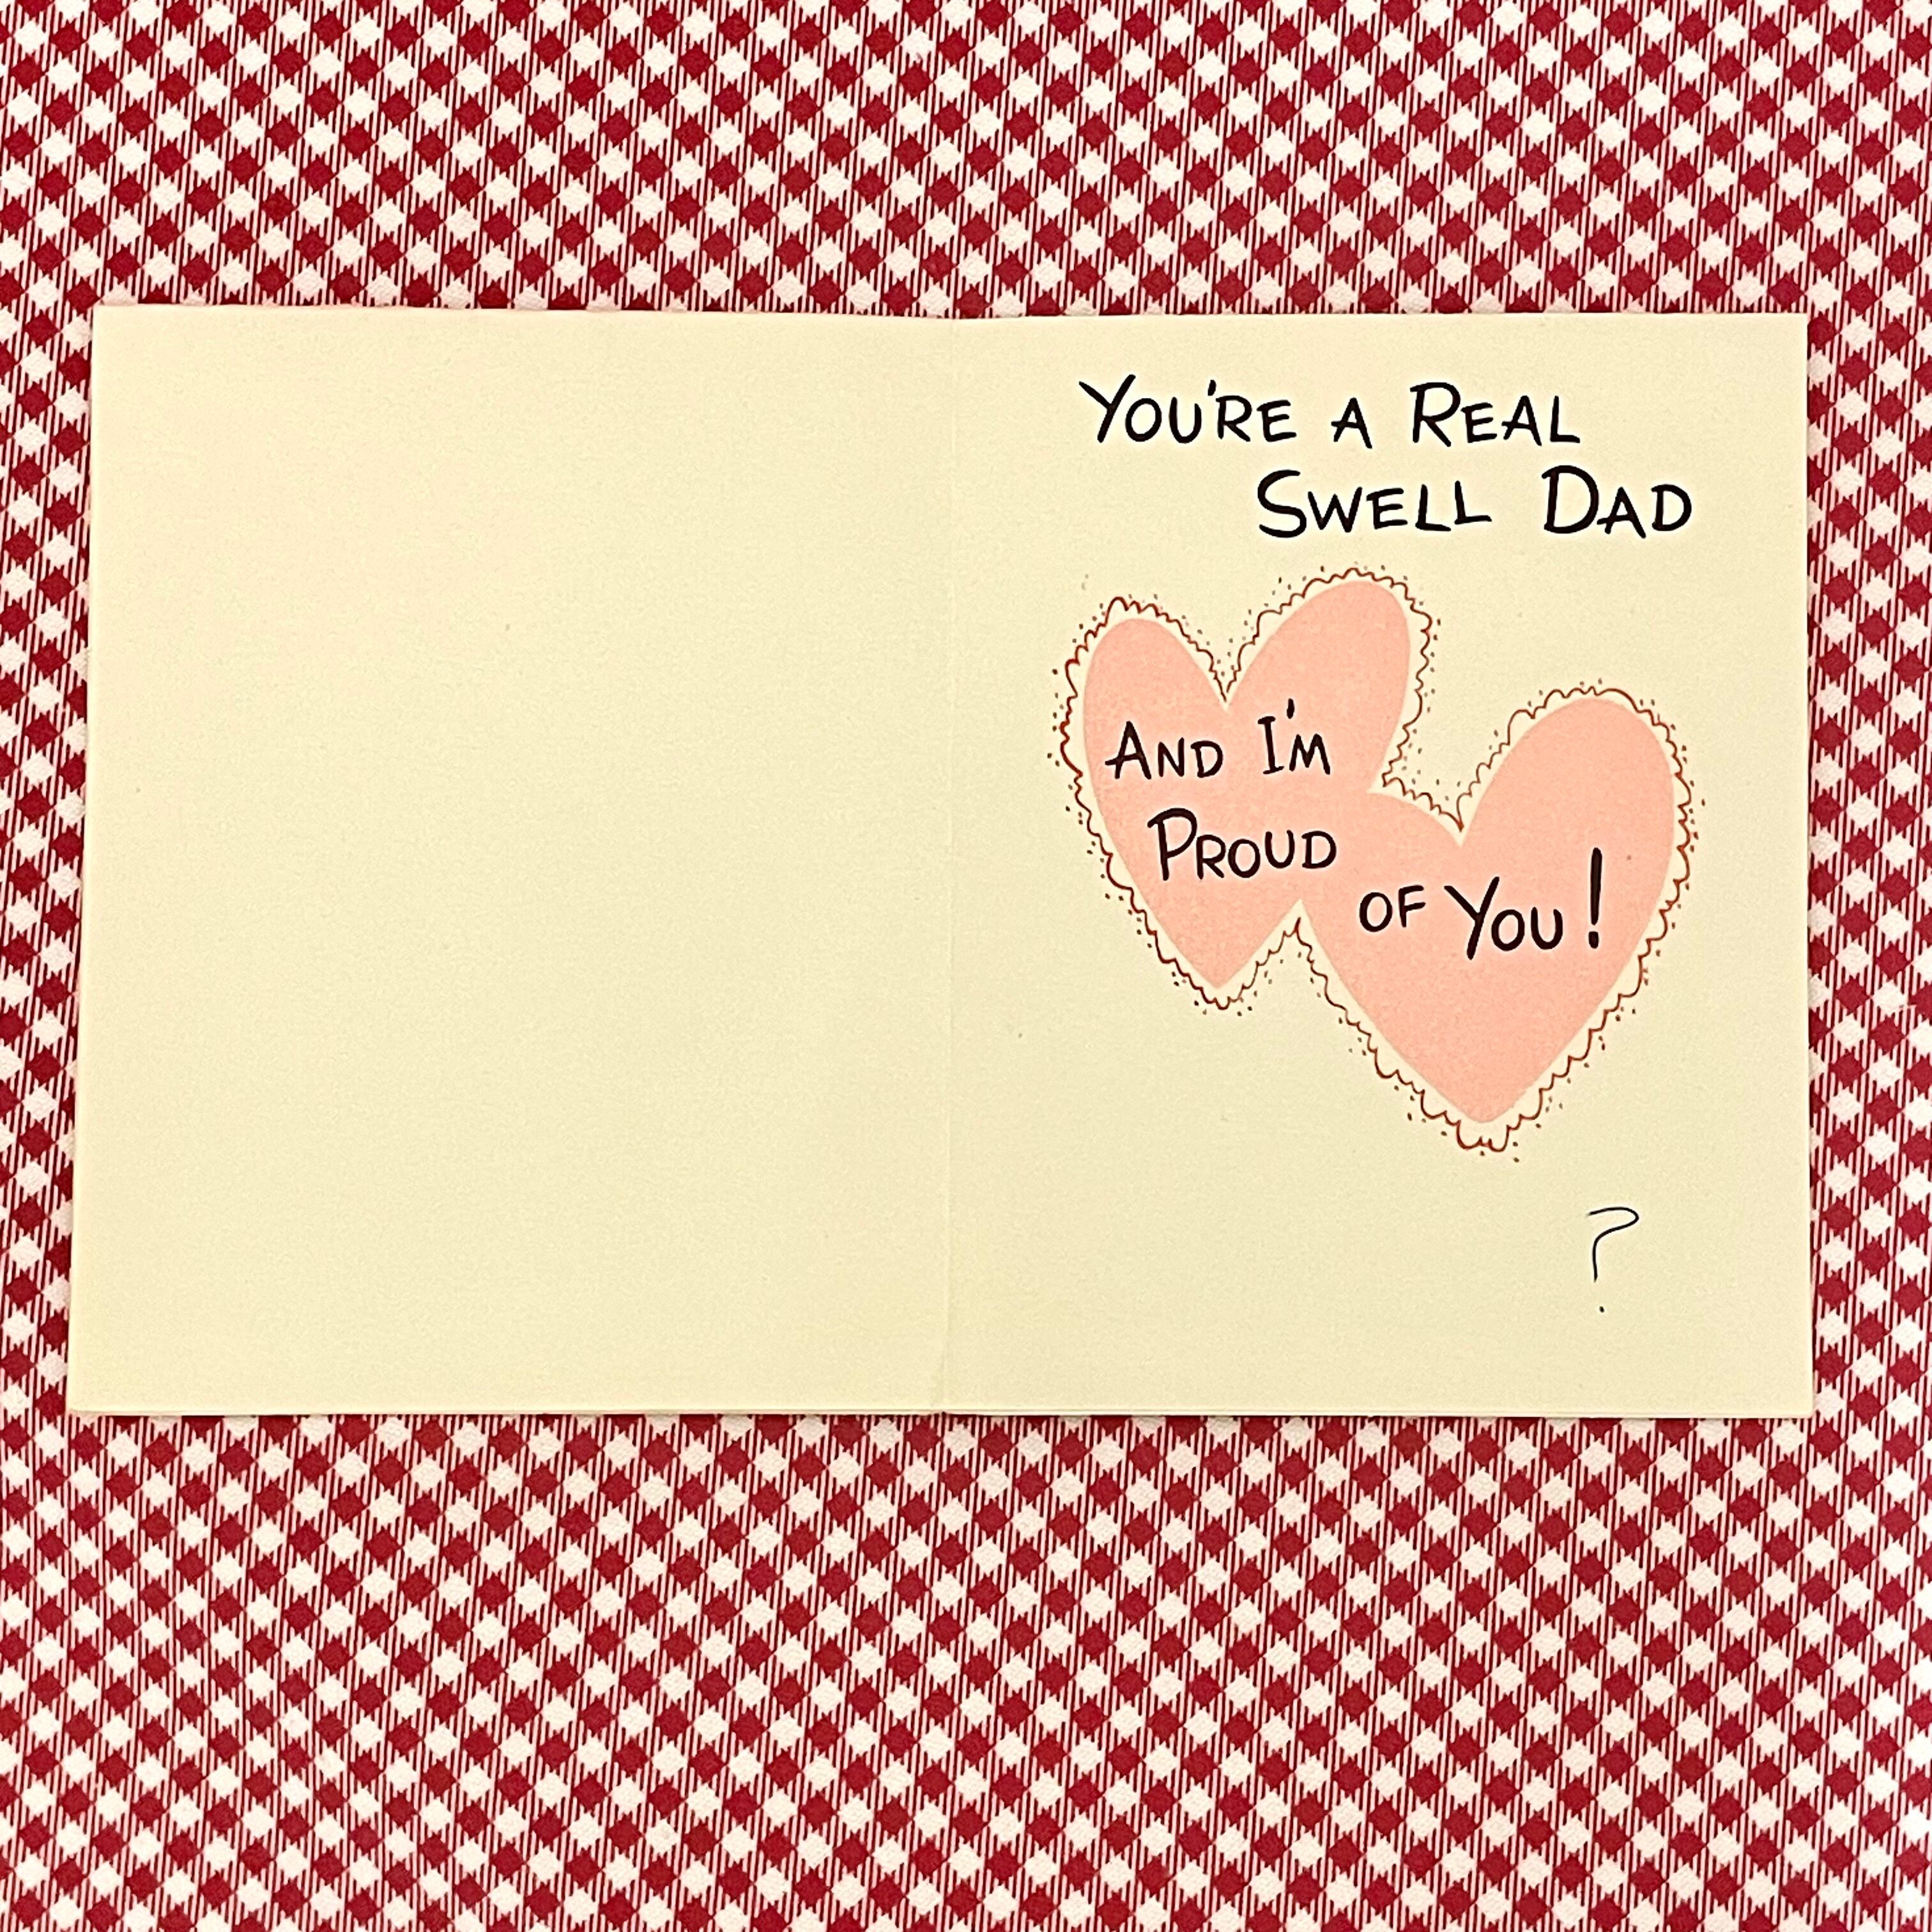 You're a Real
Swell Dad
And I'm
Proud
of You!
?